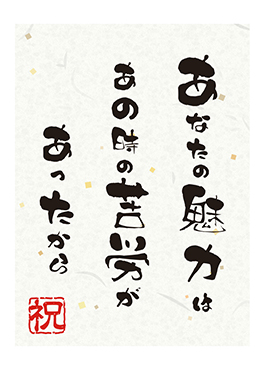 あなたの魅力は
あの時の苦労が
あったから
祝